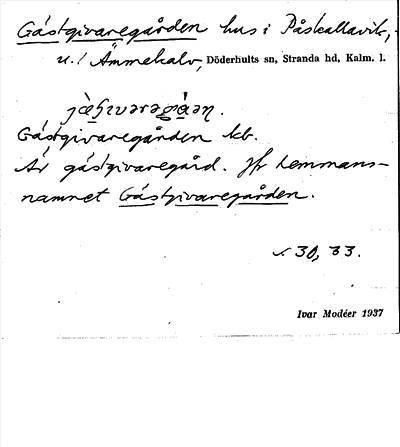 Gästgivaregården hus i Påskallavik,
u. / Ämmekalv, Döderhults sn, Stranda hd, Kalm. l.
Gästgivaregården kb.
Är gästgivaregård. Jfr hemmans-
namnet Gästgivaregården.
30, 33.
Ivar Modéer 1937